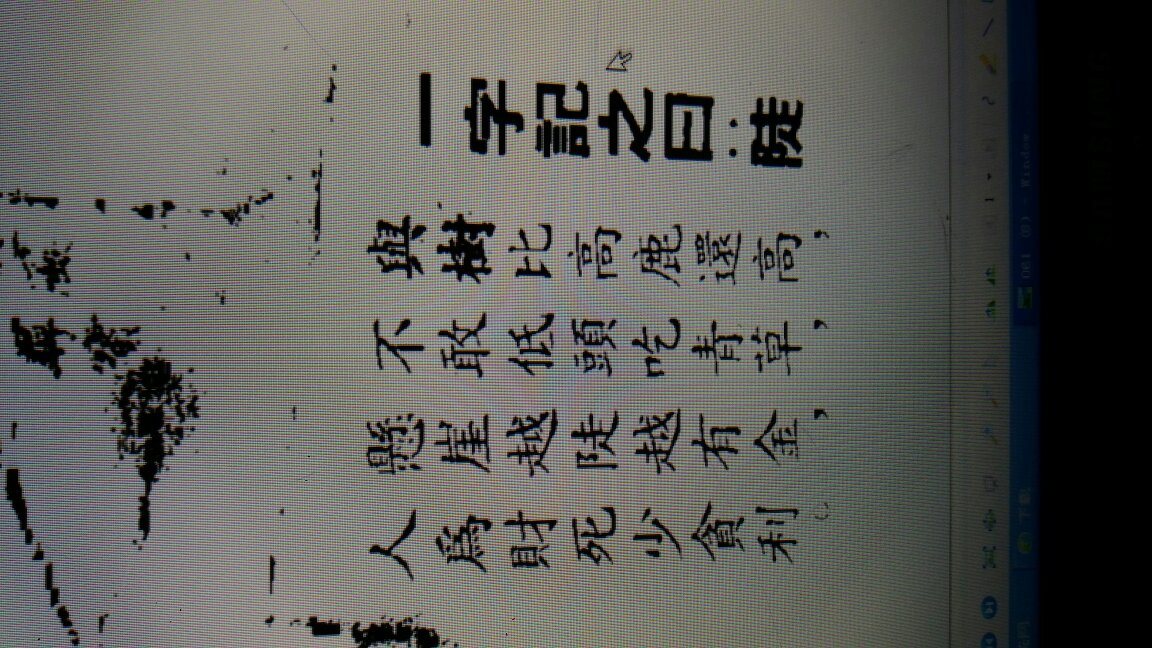 一字記之曰：陡
與樹比高鹿還高，
不敢低頭吃青草，
懸崖越陡越有金，
人爲財死少貪利。
061 (8) - Window
下載